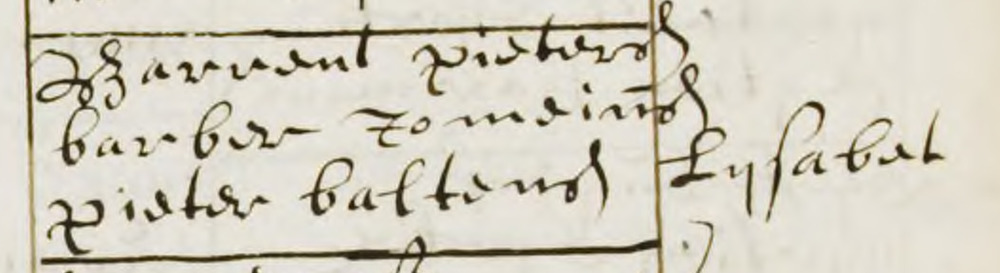 Barrent pieters
barber tomeins
pieter baltens Lysabet